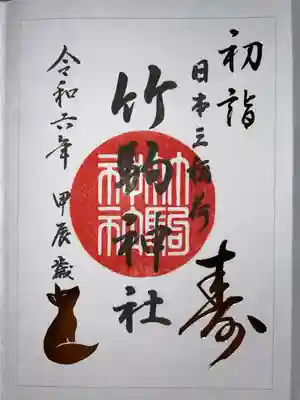 初詣
寿
日本三稲荷
竹駒神社
竹駒神社
令和六年 甲辰歳